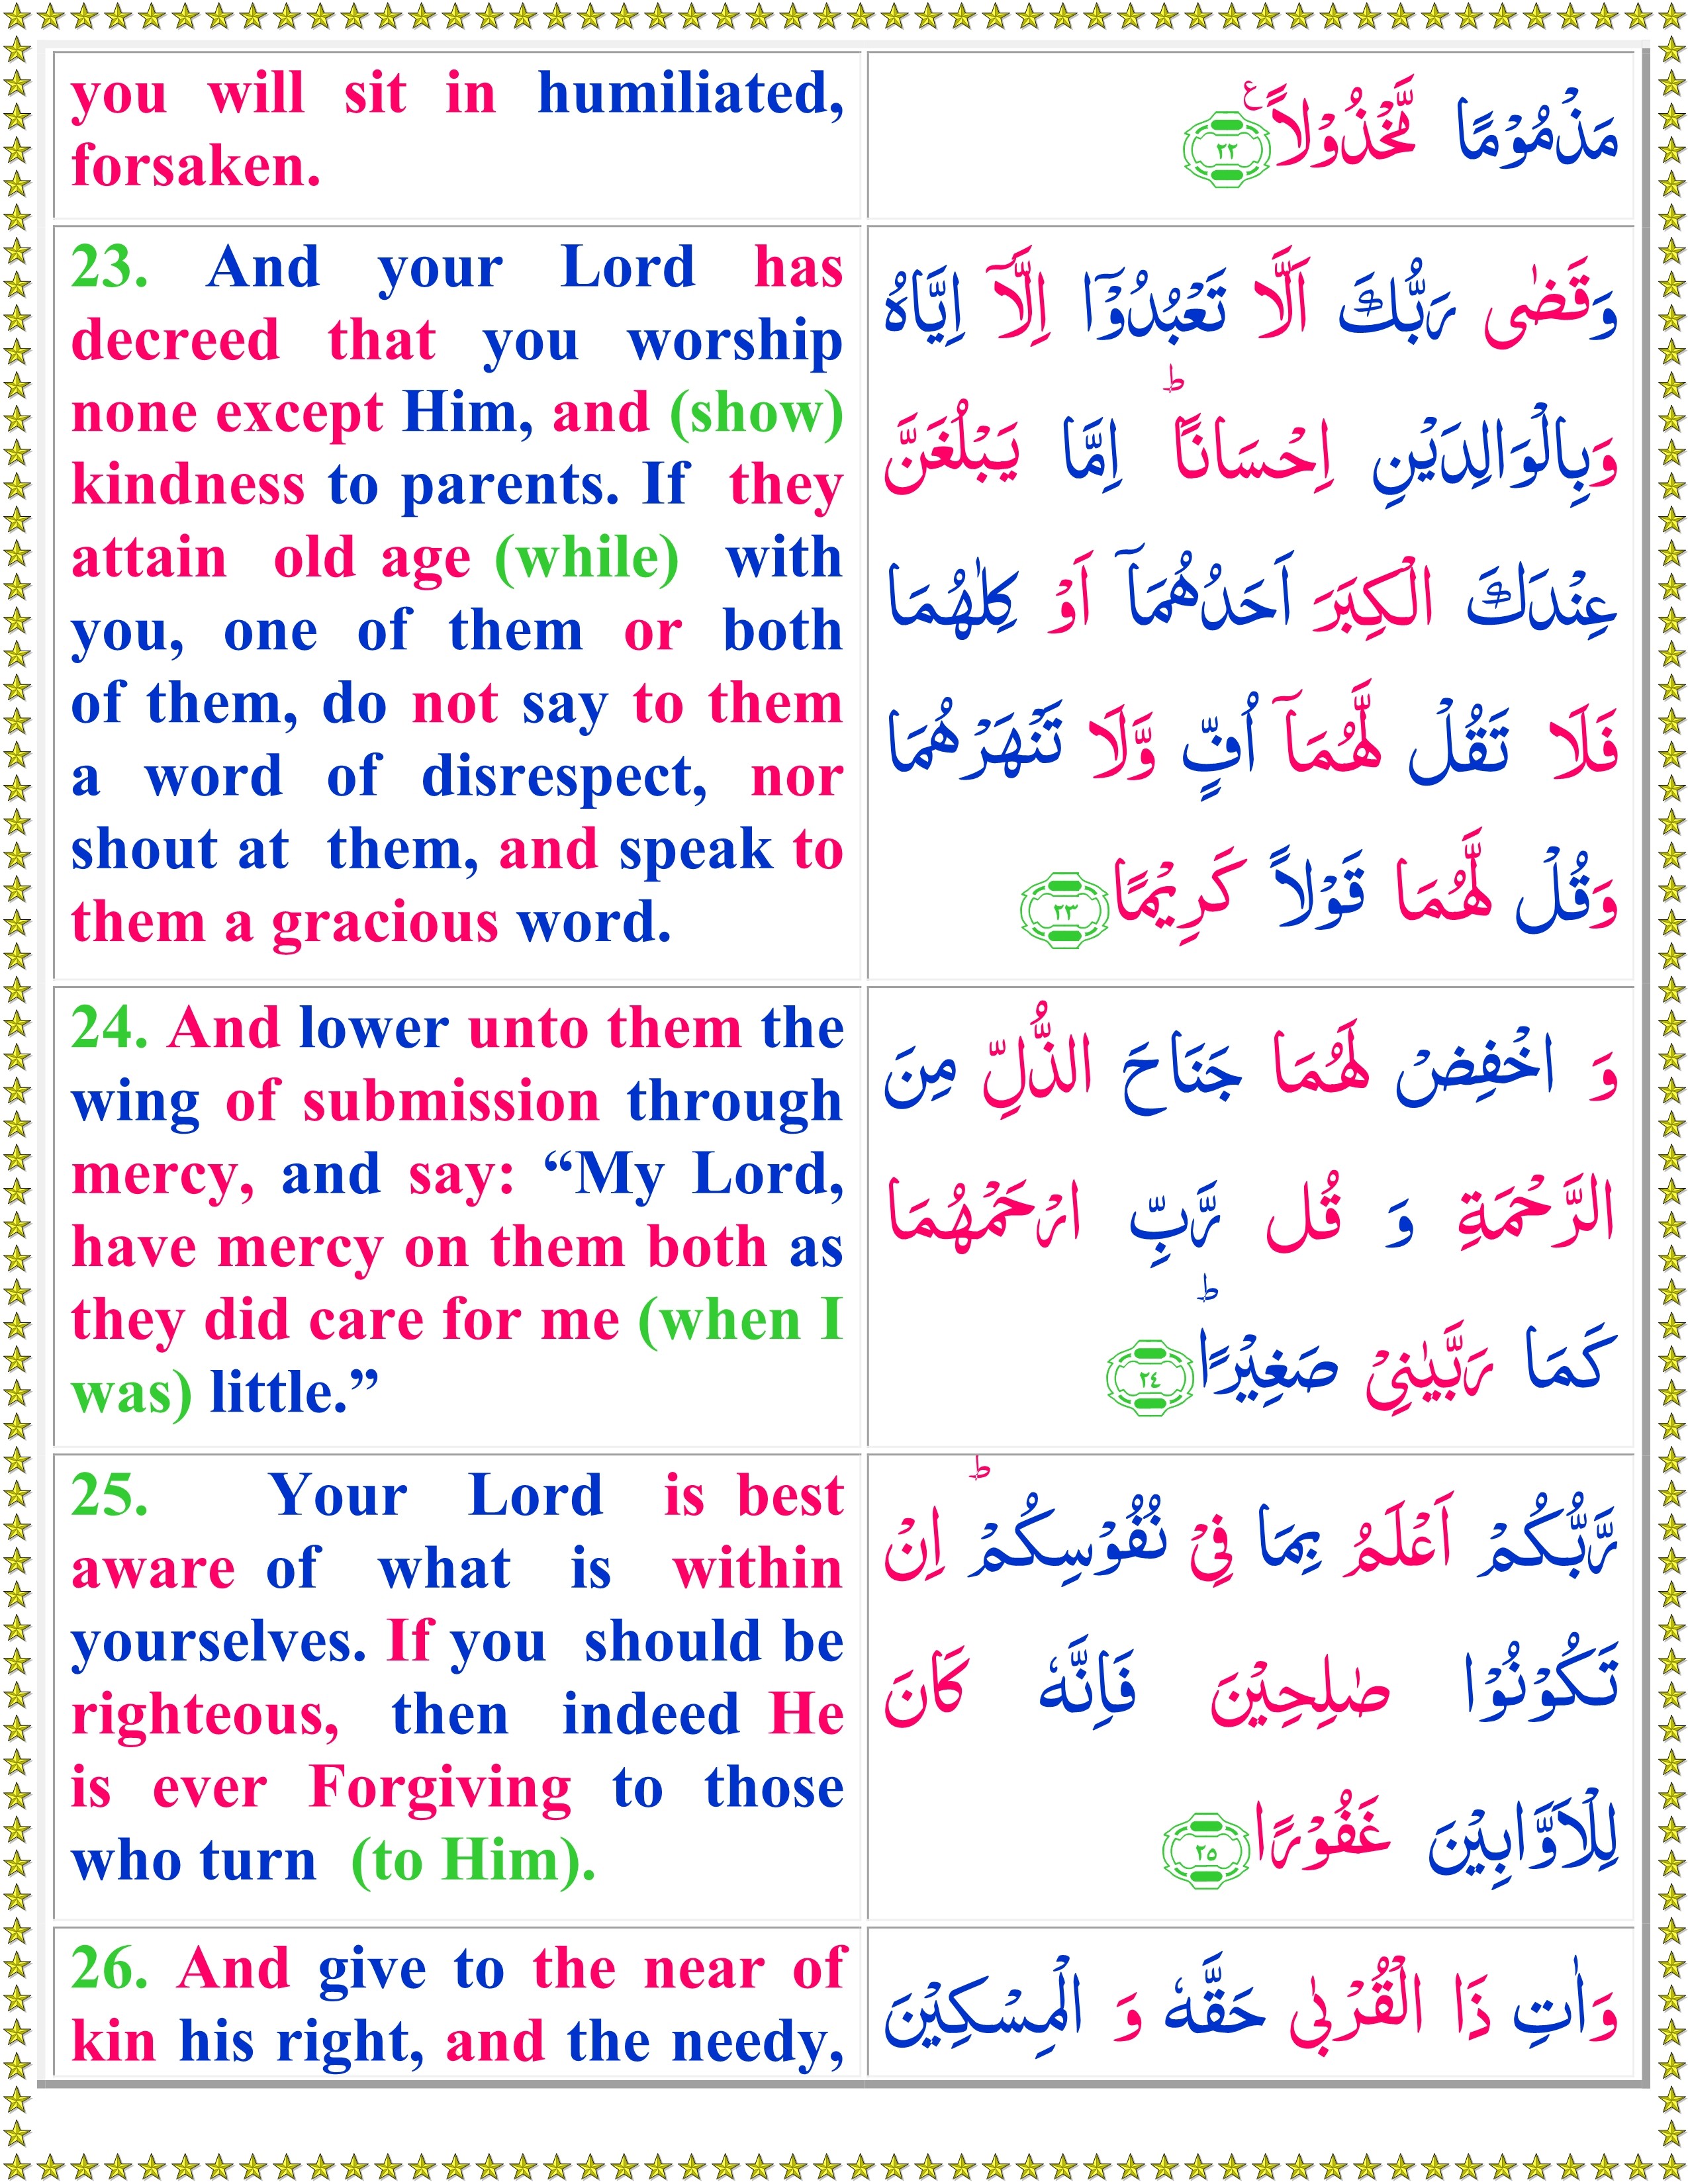 you will sit in humiliated,
forsaken.
مَذْمُوْمًا مَّخْذُوْلًا ۧ ﴿٢٢﴾
23. And your Lord has
decreed that you worship
none except Him, and (show)
kindness to parents. If they
attain old age (while) with
you, one of them or both
of them, do not say to them
a word of disrespect, nor
shout at them, and speak to
them a gracious word.
وَقَضٰى رَبُّكَ اَلَّا تَعْبُدُوْۤا اِلَّاۤ اِيَّاهُ
وَبِالْوَالِدَيْنِ اِحْسَانًاؕ اِمَّا يَبْلُغَنَّ
عِنْدَكَ الْكِبَرَ اَحَدُهُمَاۤ اَوْ كِلٰهُمَا
فَلَا تَقُلْ لَّهُمَاۤ اُفٍّ وَّلَا تَنْهَرْهُمَا
وَقُلْ لَّهُمَا قَوْلًا كَرِيْمًا ﴿٢٣﴾
24. And lower unto them the
wing of submission through
mercy, and say: “My Lord,
have mercy on them both as
they did care for me (when I
was) little.”
وَ اخْفِضْ لَهُمَا جَنَاحَ الذُّلِّ مِنَ
الرَّحْمَةِ وَ قُل رَّبِّ ارْحَمْهُمَا
كَمَا رَبَّيٰنِىْ صَغِيْرًاؕ ﴿٢٤﴾
25. Your Lord is best
aware of what is within
yourselves. If you should be
righteous, then indeed He
is ever Forgiving to those
who turn (to Him).
رَّبُّكُمْ اَعْلَمُ بِمَا فِىْ نُفُوْسِكُمْؕ اِنْ
تَكُوْنُوْا صٰلِحِيْنَ فَاِنَّهٗ كَانَ
لِلْاَوَّابِيْنَ غَفُوْرًا ﴿٢٥﴾
26. And give to the near of
kin his right, and the needy,
وَاٰتِ ذَا الْقُرْبٰى حَقَّهٗ وَ الْمِسْكِيْنَ